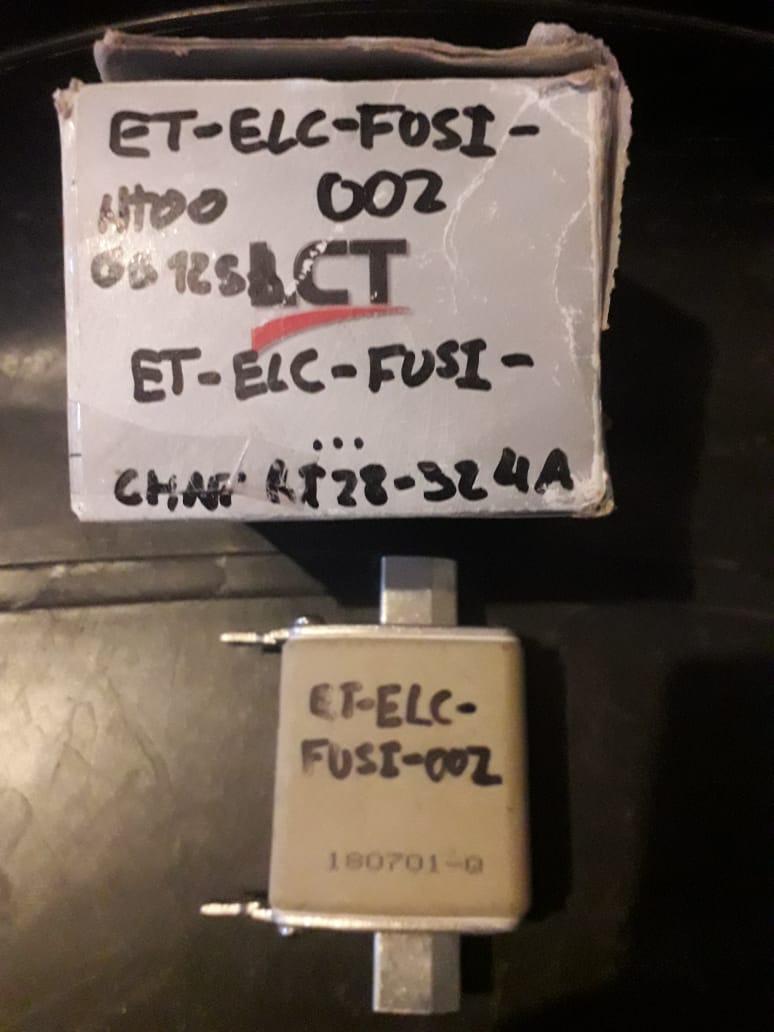 ET-ELC-FUSI-
NT00 002
LCT
ET-ELC-FUSI-
...
RT28-32 4A
ET-ELC-
FUSI-002
180701-Q